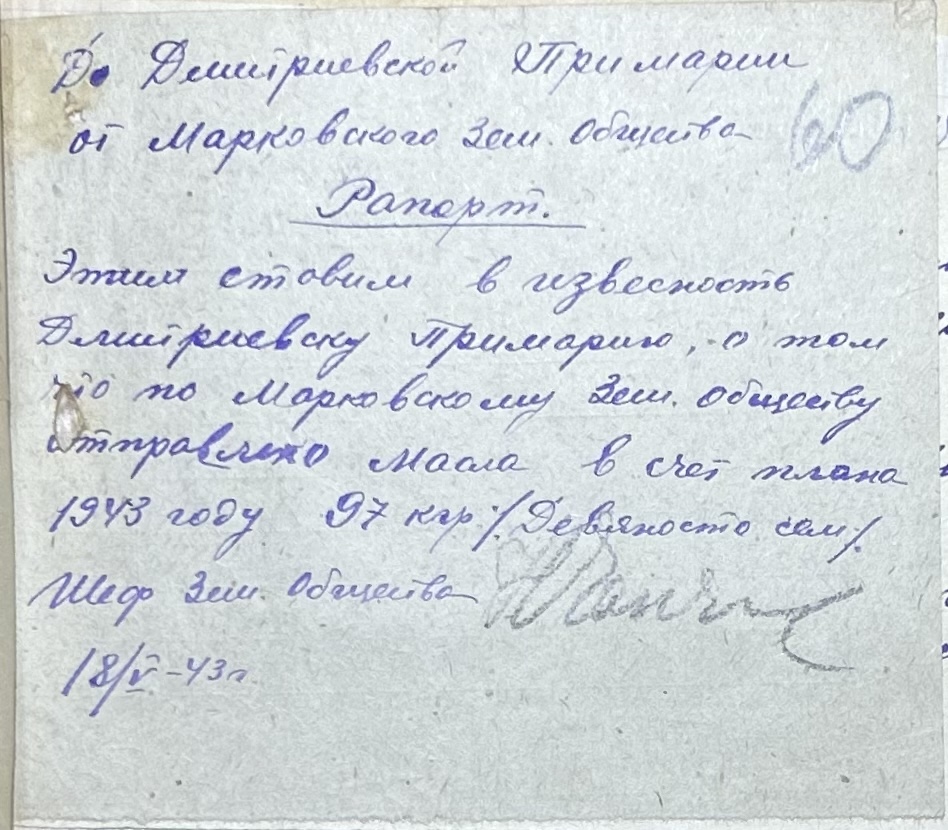 До Дмитриевской Примарии
от Марковского Зем. Общества
60
Рапорт.
Этим стовим в извесность
Дмитриевску Примарию, о том
что по Марковскому Зем. обществу
отправлено масла в счет плана
1943 году 97 кгр. /Девяносто сем/.
Шеф Зем. Общества
18/V-43г.